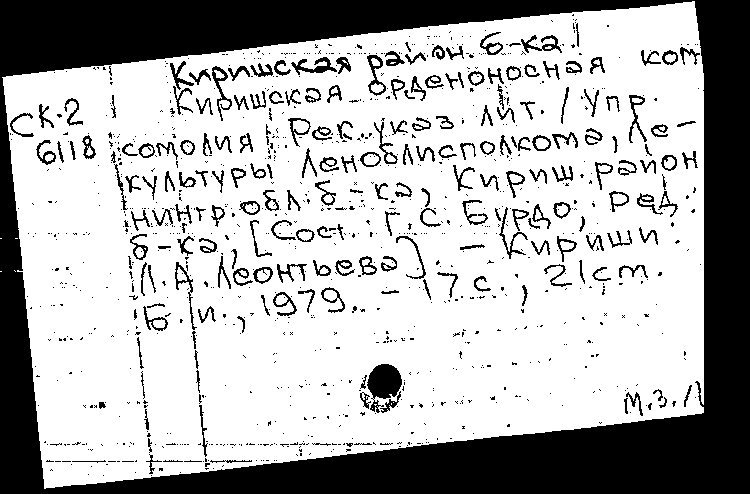 Киришская район. б-ка.
Киришская орденоносная ком
СК-2
6118
сомолия: Рек. указ. лит. / Упр.
культуры Леноблисполкома, Ле-
нингр. обл. б-ка, Кириш. район
б-ка; [Сост.: Г. С. Бурдо; Ред.:
Л. А. Леонтьева]. - Кириши:
Б. и., 1979. - 17 с.; 21 cm.
М.З.